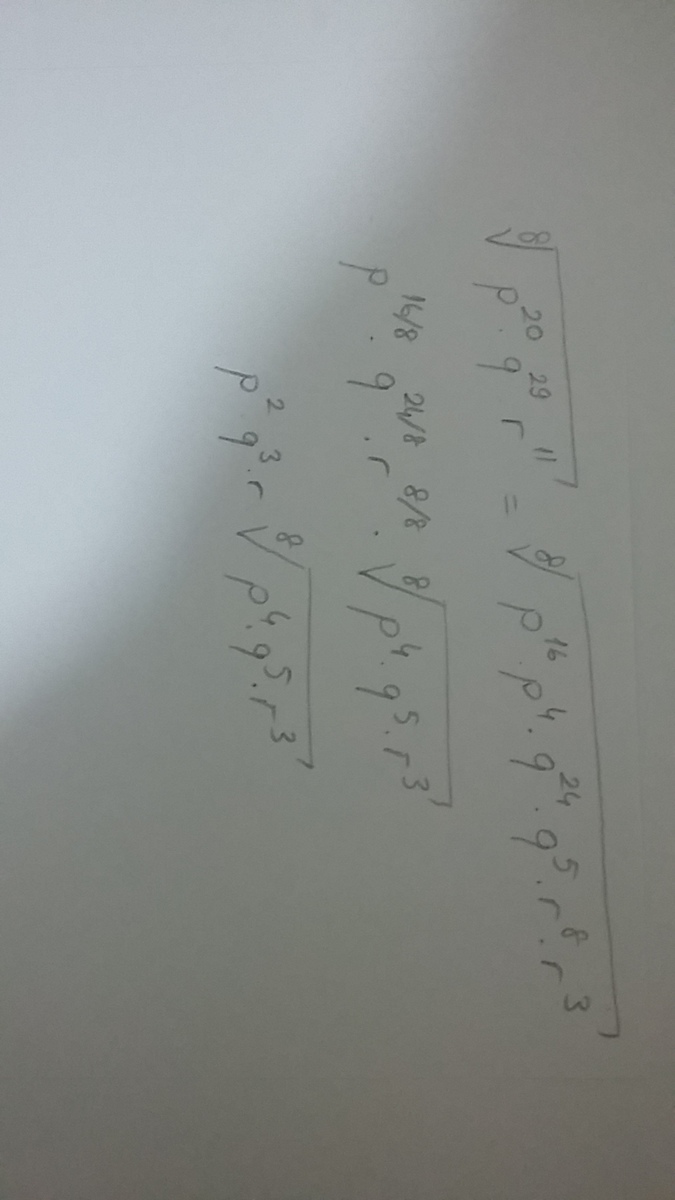 ⁸√(p²⁰ · q²⁹ r¹¹) = ⁸√(p¹⁶ · p⁴ · q²⁴ · q⁵ · r⁸ · r³)
p^16/8 · q^24/8 · r^8/8 · ⁸√(p⁴ · q⁵ · r³)
p² q³ · r ⁸√(p⁴ · q⁵ · r³)